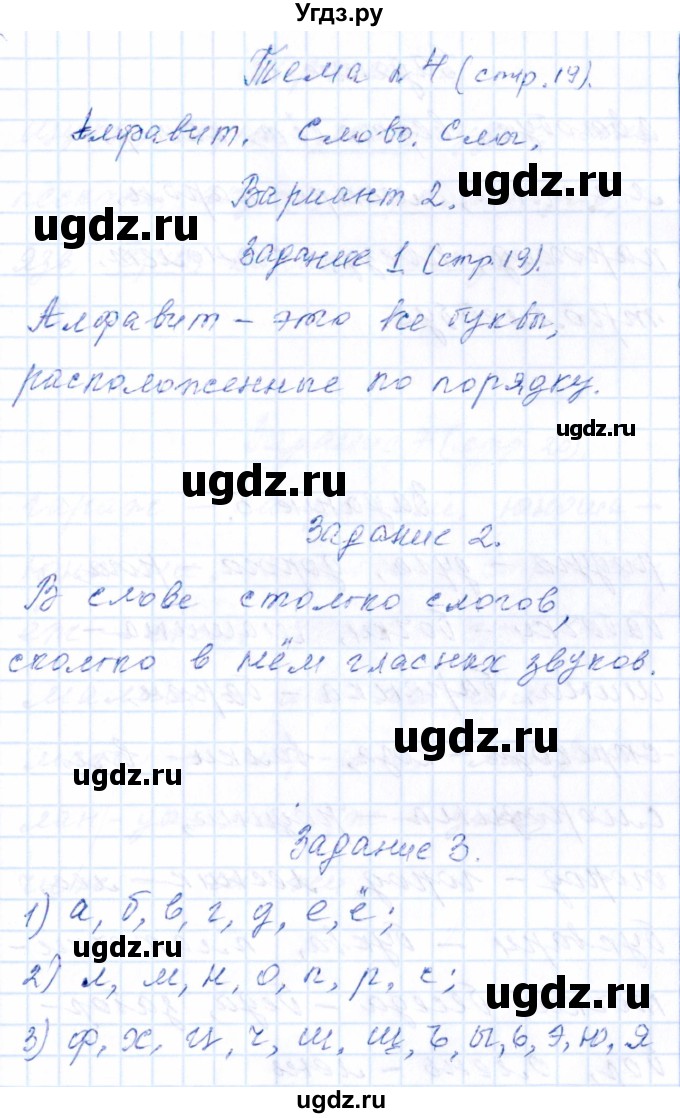 Угдз.ру
Тема № 4 (стр. 19).
Алфавит. Слово. Слог.
Вариант 2.
ugdz.ru
ugdz.ru
Задание 1 (стр. 19).
Алфавит – это все буквы,
расположенные по порядку.
ugdz.ru
ugdz.ru
Задание 2.
В слове столько слогов,
сколько в нём гласных звуков.
ugdz.ru
ugdz.ru
Задание 3.
1) а, б, в, г, д, е, ё;
ugdz.ru
2) л, м, н, о, п, р, с;
ugdz.ru
3) ф, х, ц, ч, ш, щ, ъ, ы, ь, э, ю, я
ugdz.ru